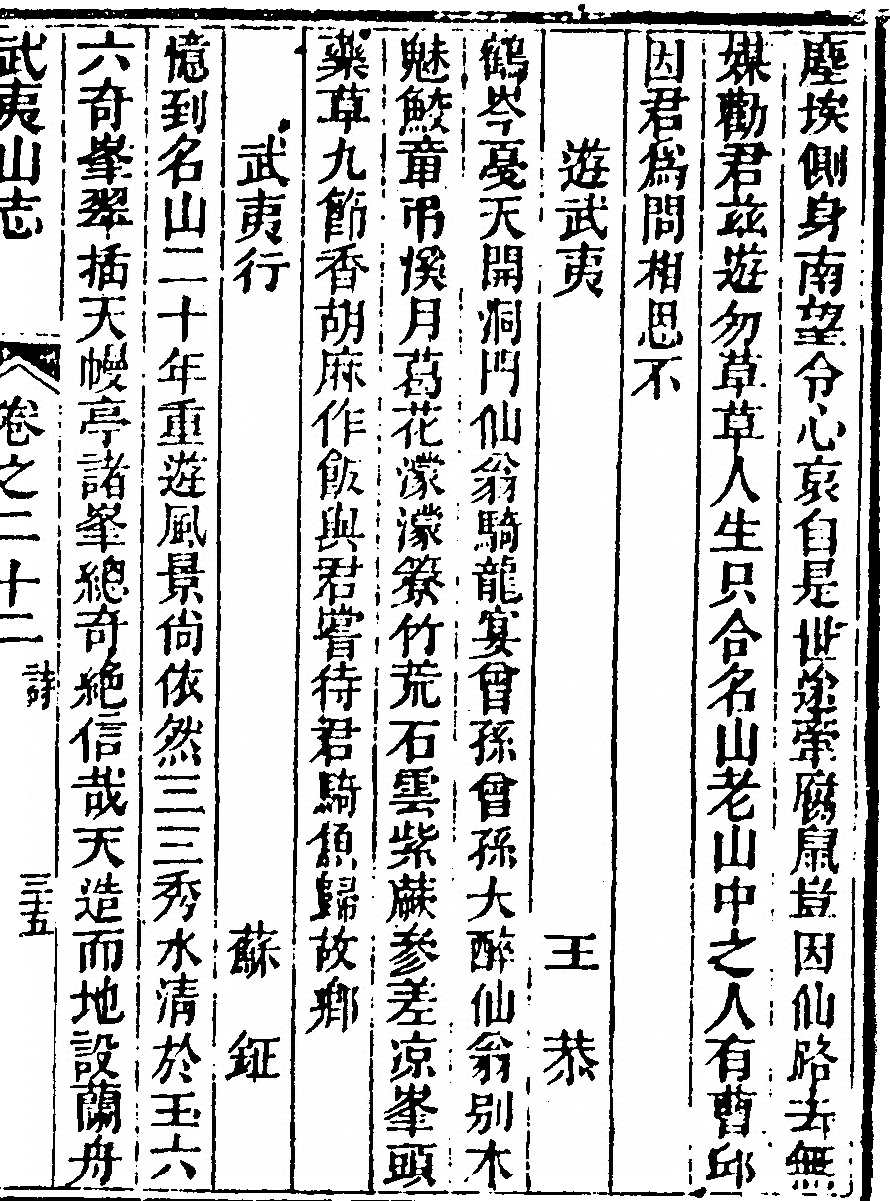 塵埃側身南望令心哀自是世途牽腐鼠豈因仙路去無
媒勸君兹遊勿草草人生只合名山老山中之人有曹邱
因君爲問相思不
遊武夷 王恭
鶴岑戞天開洞門仙翁騎龍宴曾孫曾孫大醉仙翁别木
魅鮫章弔溪月葛花濛濛篻竹荒石雲紫蕨參差凉峯頭
藥草九節香胡麻作飯與君嘗待君騎鯨歸故鄉
武夷行 蘇鉦
憶到名山二十年重遊風景尙依然三三秀水清於玉六
六奇峯翠插天幔亭諸峯總奇絶信哉天造而地設蘭舟
武夷山志 卷之二十二 詩 三十五